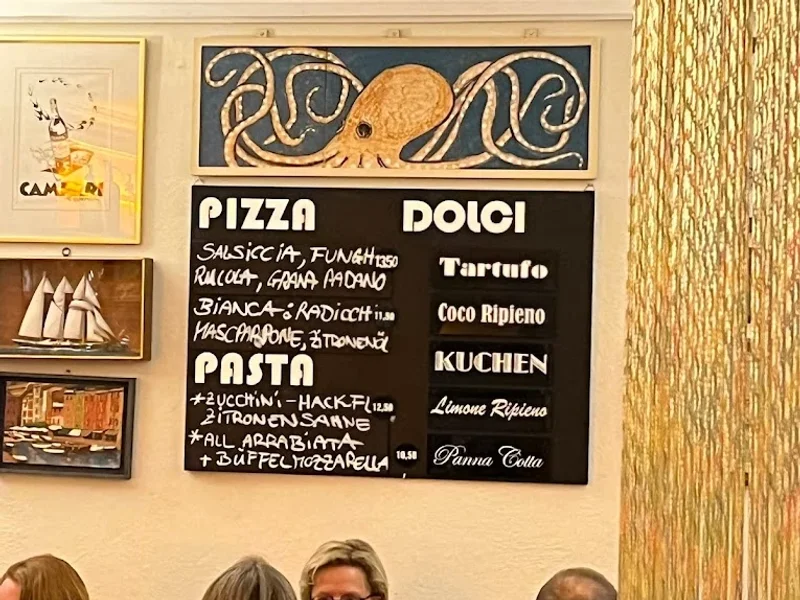 CAMPARI
PIZZA
SALSICCIA, FUNGHI 1350
RUCOLA, GRANA PADANO
BIANCA: RADICCHI 11,50
MASCPARPONE, ZITRONENÖL
PASTA
*ZUCCHINI-HACKFL 12,50
ZITRONENSAHNE
*ALL ARRABIATA
+ BÜFFELMOZZARELLA 10,50
DOLCI
Tartufo
Coco Ripieno
KUCHEN
Limone Ripieno
Panna Cotta